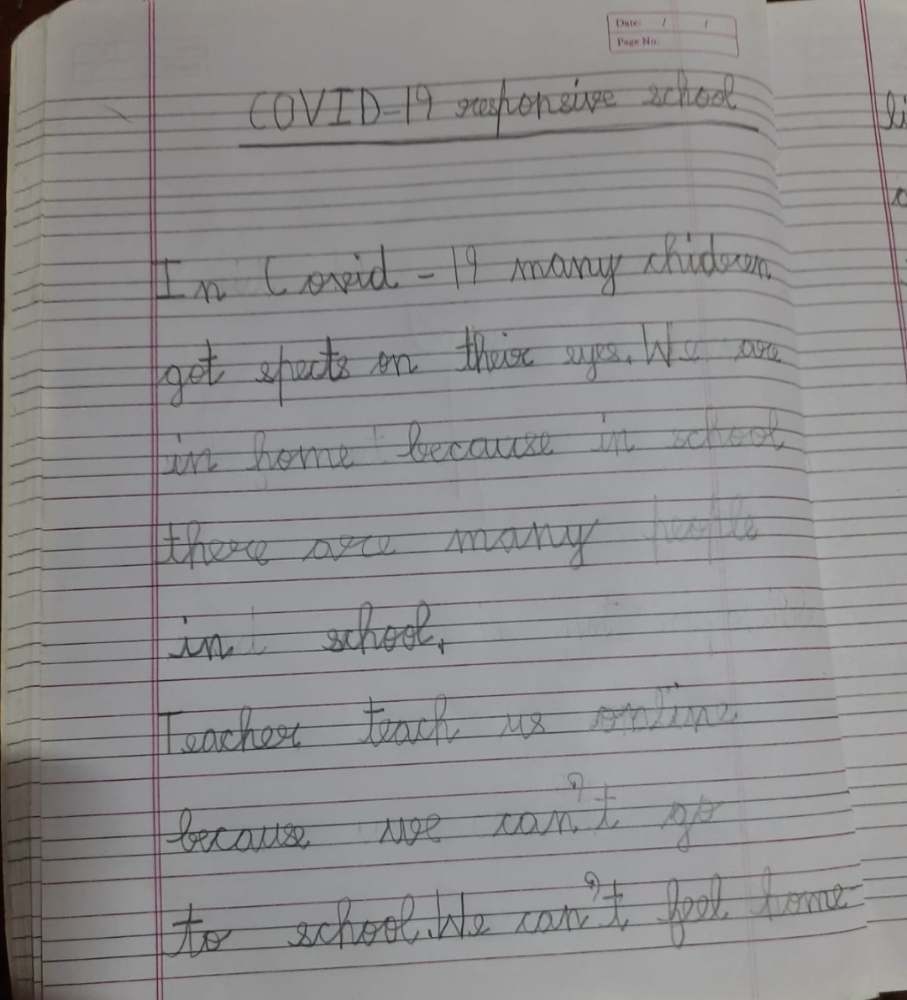 Date: / /
Page No.
COVID-19 responsive school
In Covid - 19 many chidren
got spects on their eyes. We are
in home because in school
there are many people
in school.
Teacher teach us online
because we can't go
to school. We can't feel home
li